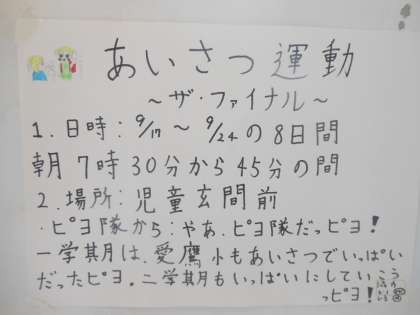 あいさつ運動
～ザ・ファイナル～
1.日時:9/17～9/24の8日間
朝7時30分から45分の間
2.場所:児童玄関前
・ピヨ隊から:やぁ、ピヨ隊だっピヨ!
一学期は、愛鷹小もあいさつでいっぱい
だったピヨ。二学期もいっぱいにしていこう
っピヨ!